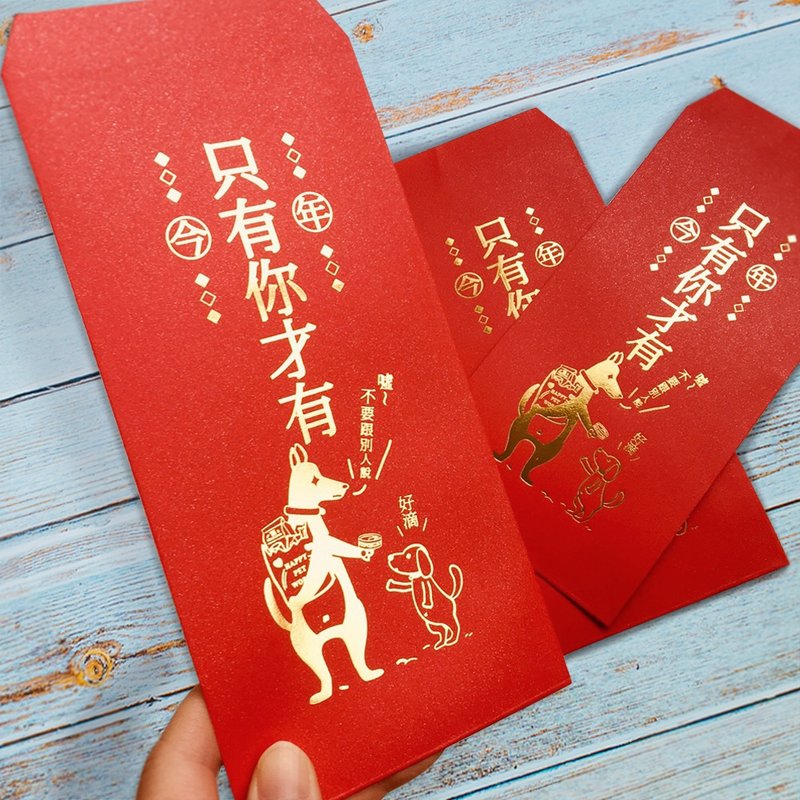 今年
只有你才有
噓~
不要跟別人說
好滴
HAPPY
PET
只有你
今年
今年
只有你才有
噓~
不要跟別人說
好滴
HAPPY
PET